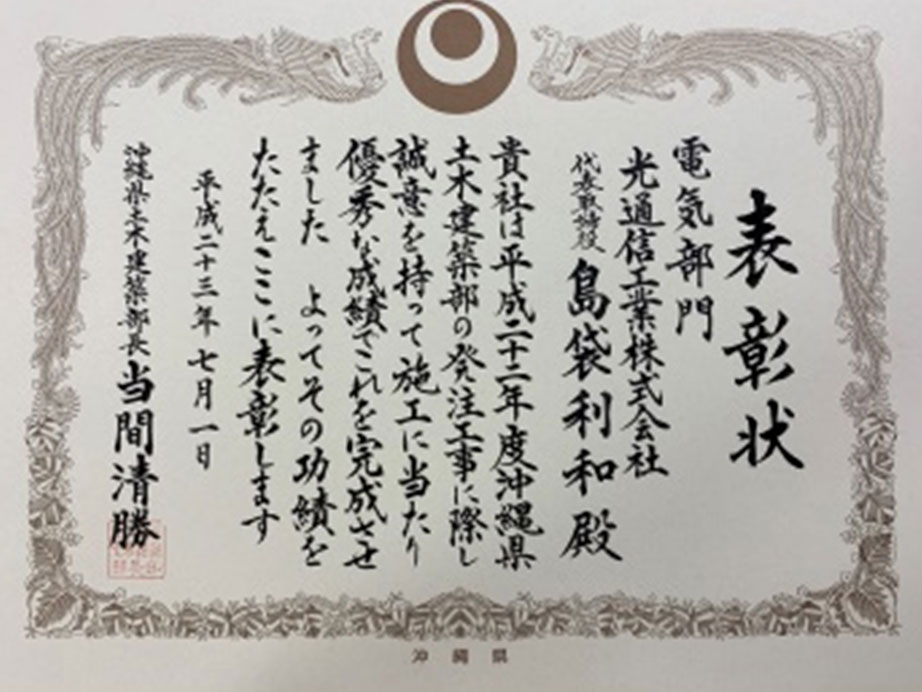 表彰状
電気部門
光通信工業株式会社
代表取締役 島袋利和殿
貴社は平成二十二年度沖縄県
土木建築部の発注工事に際し
誠意を持って施工に当たり
優秀な成績でこれを完成させ
ました よってその功績を
たたえここに表彰します
平成二十三年七月一日
沖縄県土木建築部長 当間清勝
沖縄県